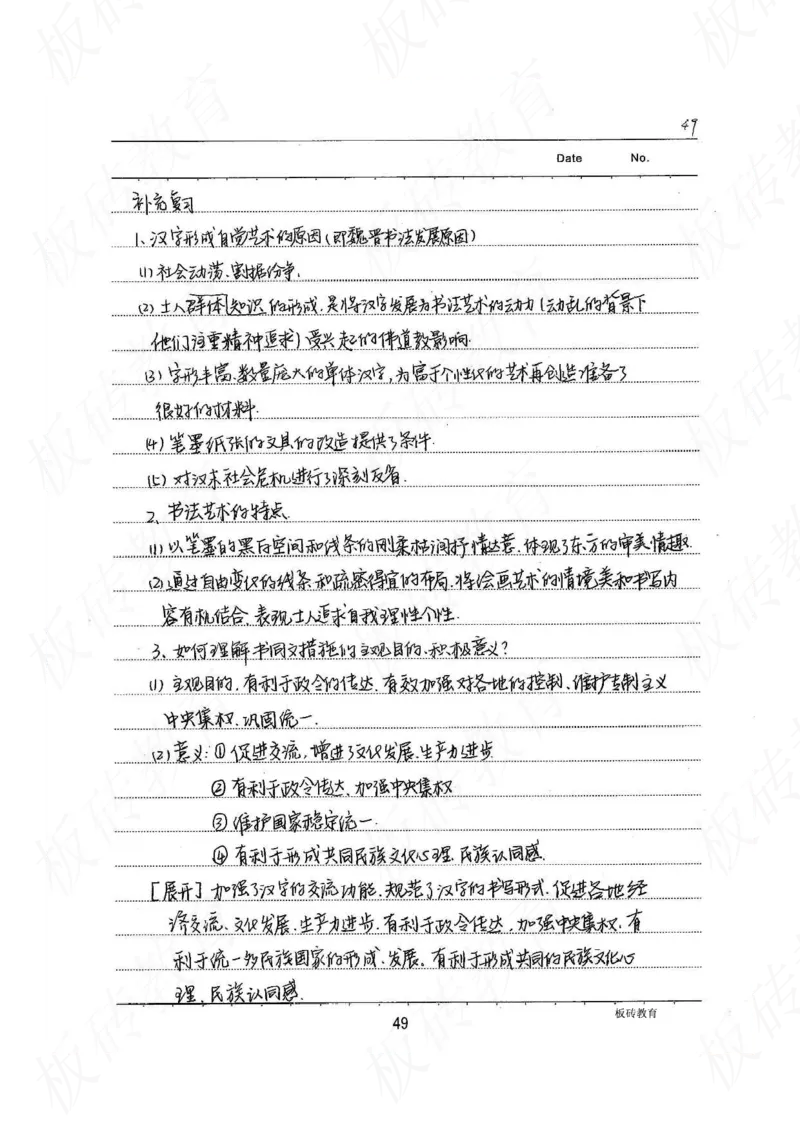 49
Date No.
补充复习
1、汉字形成自觉艺术的原因(即魏晋书法发展原因)
(1)社会动荡、割据纷争.
(2)士人群体知识的形成.是将汉字发展为书法艺术的动力(动乱的背景下
他们注重精神追求)受兴起的佛道教影响.
(3)字形丰富、数量庞大的单体汉字,为富于个性化的艺术再创造准备了
很好的材料.
(4)笔墨纸张的文具的改造提供了条件.
(5)对汉末社会危机进行了深刻反省.
2、书法艺术的特点.
(1)以笔墨的黑白空间和线条的刚柔枯润抒情达意.体现了东方的审美情趣.
(2)通过自由变化的线条和疏密得宜的布局.将绘画艺术的情境美和书写内
容有机结合.表现士人追求自我理性个性.
3、如何理解书同文措施的主观目的、积极意义?
(1)主观目的.有利于政令的传达.有效加强对各地的控制、维护专制主义
中央集权.巩固统一.
(2)意义:①促进交流,增进了文化发展.生产力进步.
②有利于政令传达、加强中央集权
③维护国家稳定统一.
④有利于形成共同民族文化心理.民族认同感.
[展开]加强了汉字的交流功能.规范了汉字的书写形式.促进各地经
济交流、文化发展.生产力进步.有利于政令传达.加强中央集权.有
利于统一多民族国家的形成、发展.有利于形成共同的民族文化心
理.民族认同感.
49
板砖教育